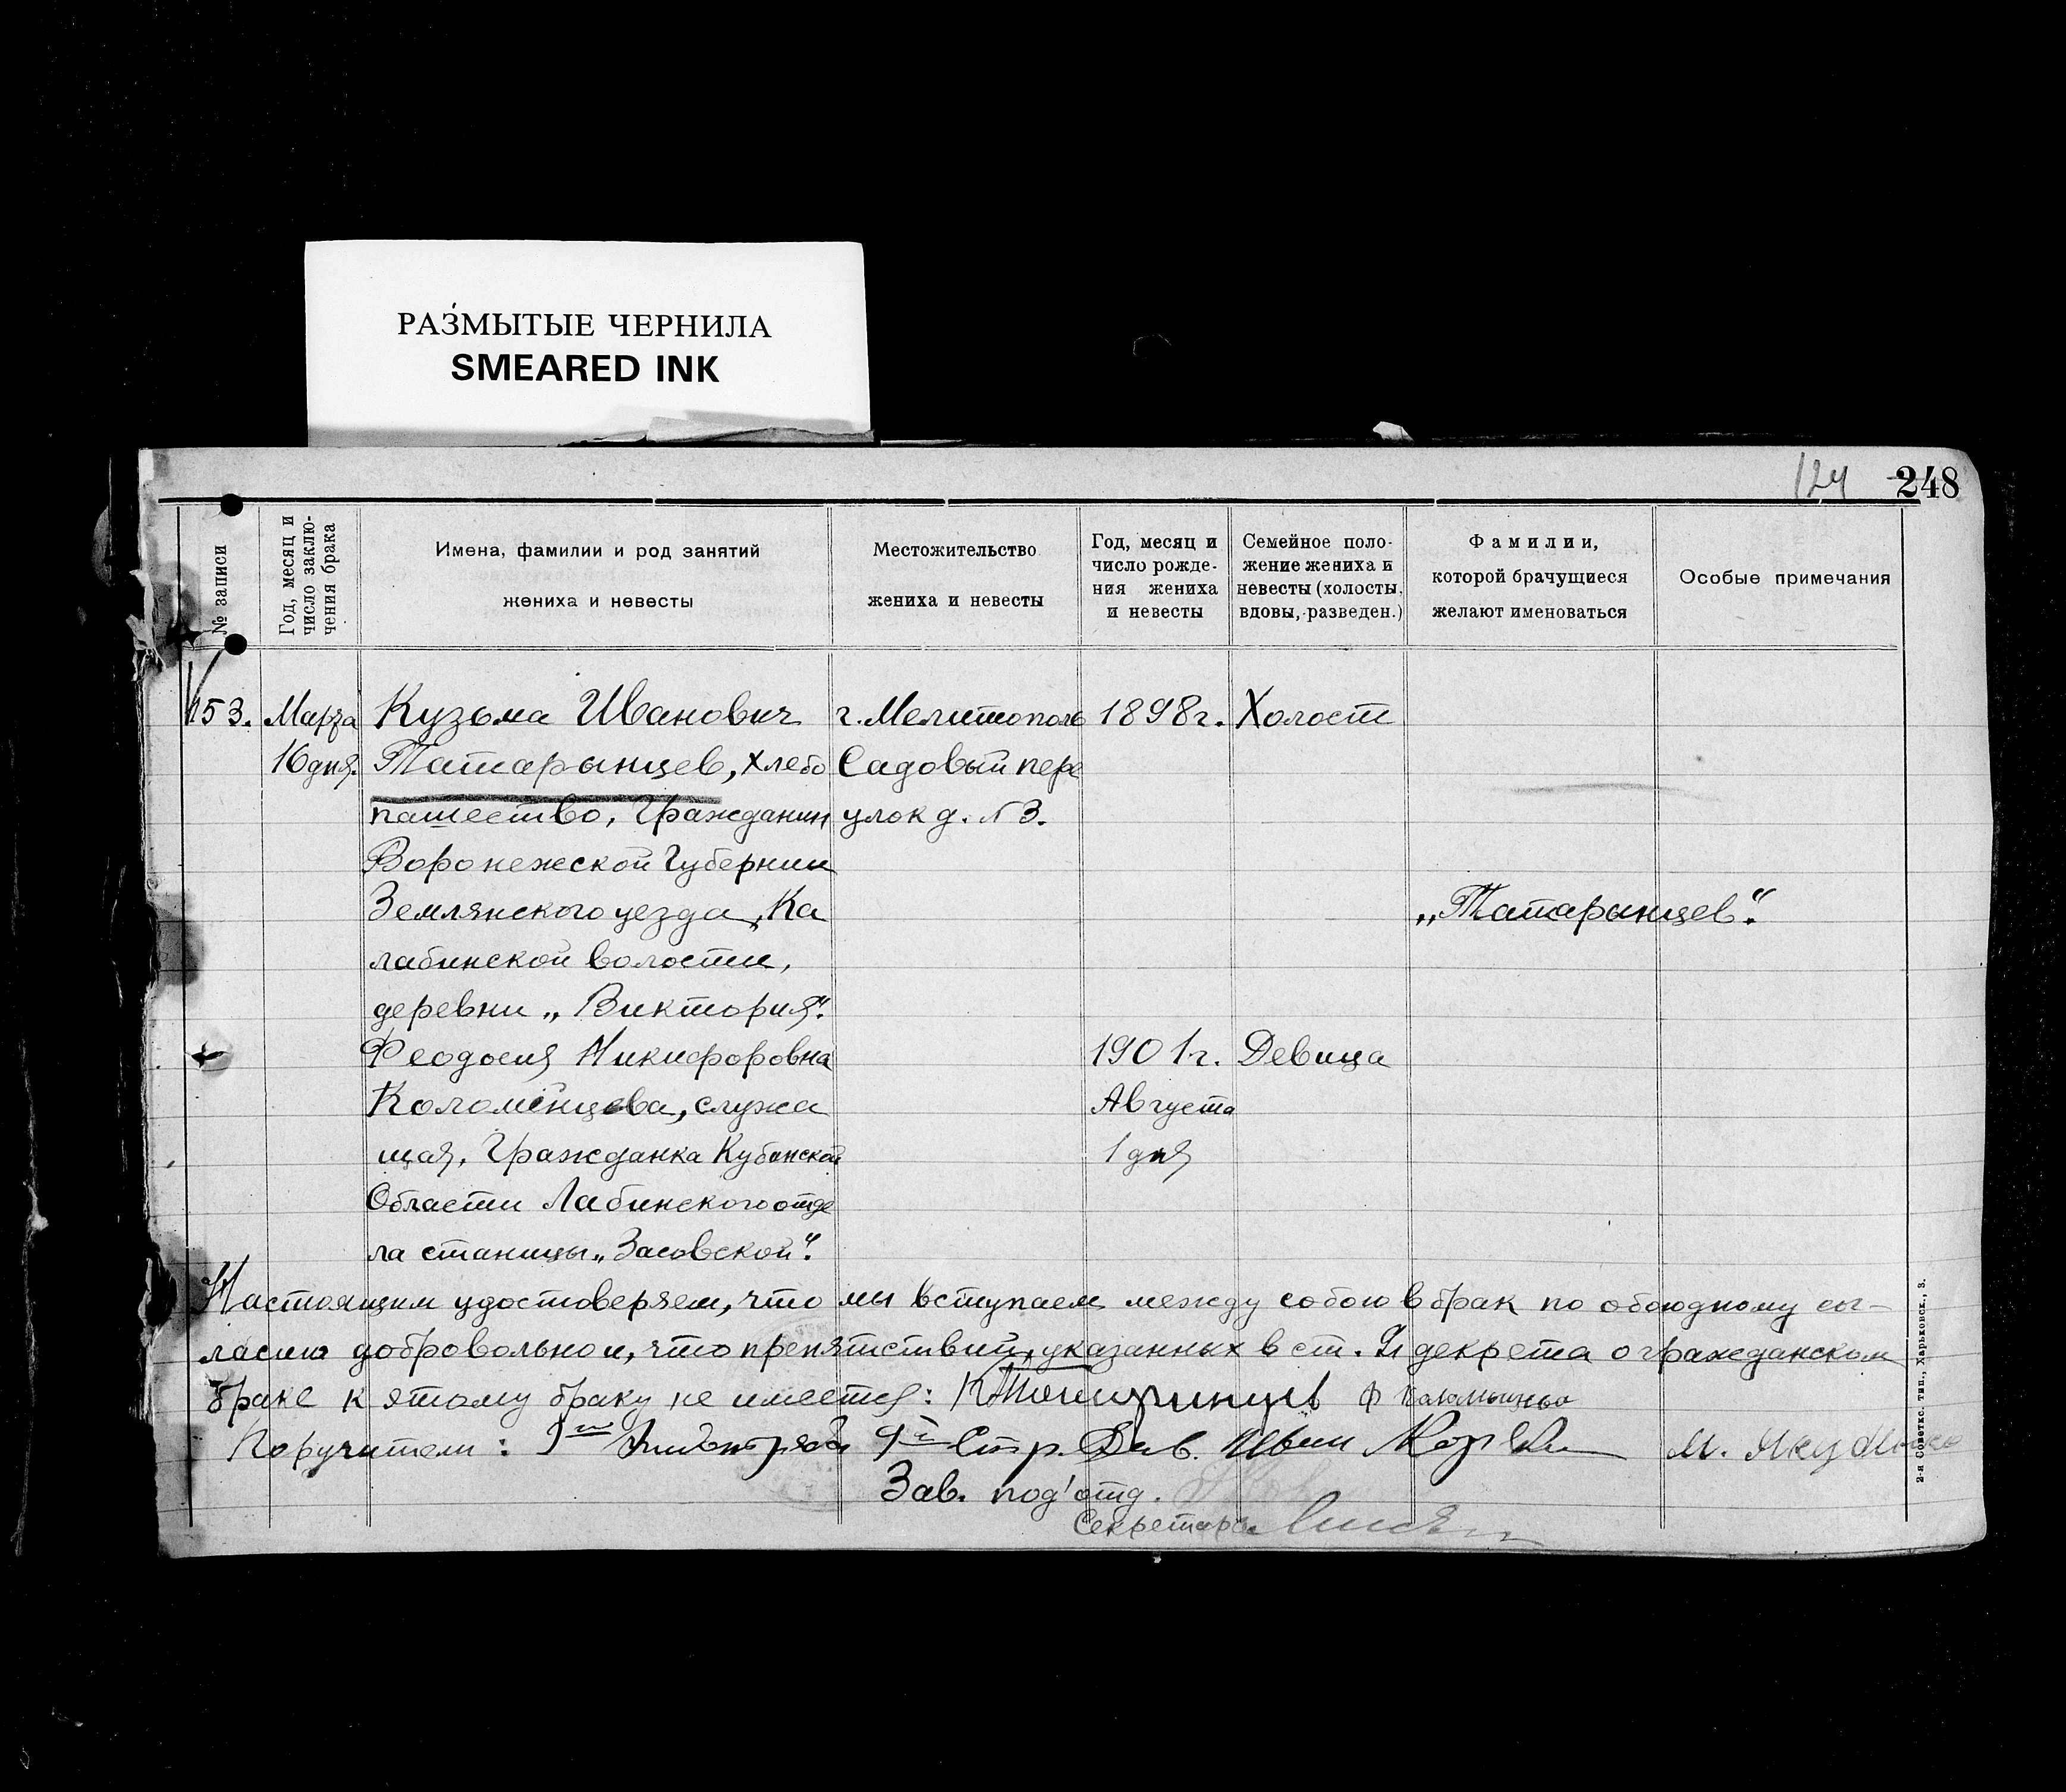 РАЗМЫТЫЕ ЧЕРНИЛА
SMEARED INK
124 248
№ записи
Год, месяц и
число заклю-
чения брака
Имена, фамилии и род занятий
жениха и невесты
Местожительство
жениха и невесты
Год, месяц и
число рожде-
ния жениха
и невесты
Семейное поло-
жение жениха и
невесты (холосты,
вдовы, разведен.)
Фамилии,
которой брачущиеся
желают именоваться
Особые примечания
153. Марта Кузьма Иванович г. Мелитополь 1898 г. Холост
16 дня. Татарынцев, хлебо Садовый пере
пашество, Гражданин улок д. № 3.
Воронежской Губернии
Землянского уезда, Ка „Татарынцев".
лабинской волости,
деревни „Виктория".
Феодосия Никифоровна 1901 г. Девица
Коломенцева, служа Августа
щая, Гражданка Кубанской 1 дня
Области Лабинского отде
ла станицы „Засовской".
Настоящим удостоверяем, что мы вступаем между собою в брак по обоюдному сог-
ласию добровольно и, что препятствий, указанных в ст. декрета о гражданском
браке к этому браку не имеется:
Поручители: Стр. Див. Иван
Зав. под'отд.
Секретарь
2-я Советск. тип., Харьковск., 3.